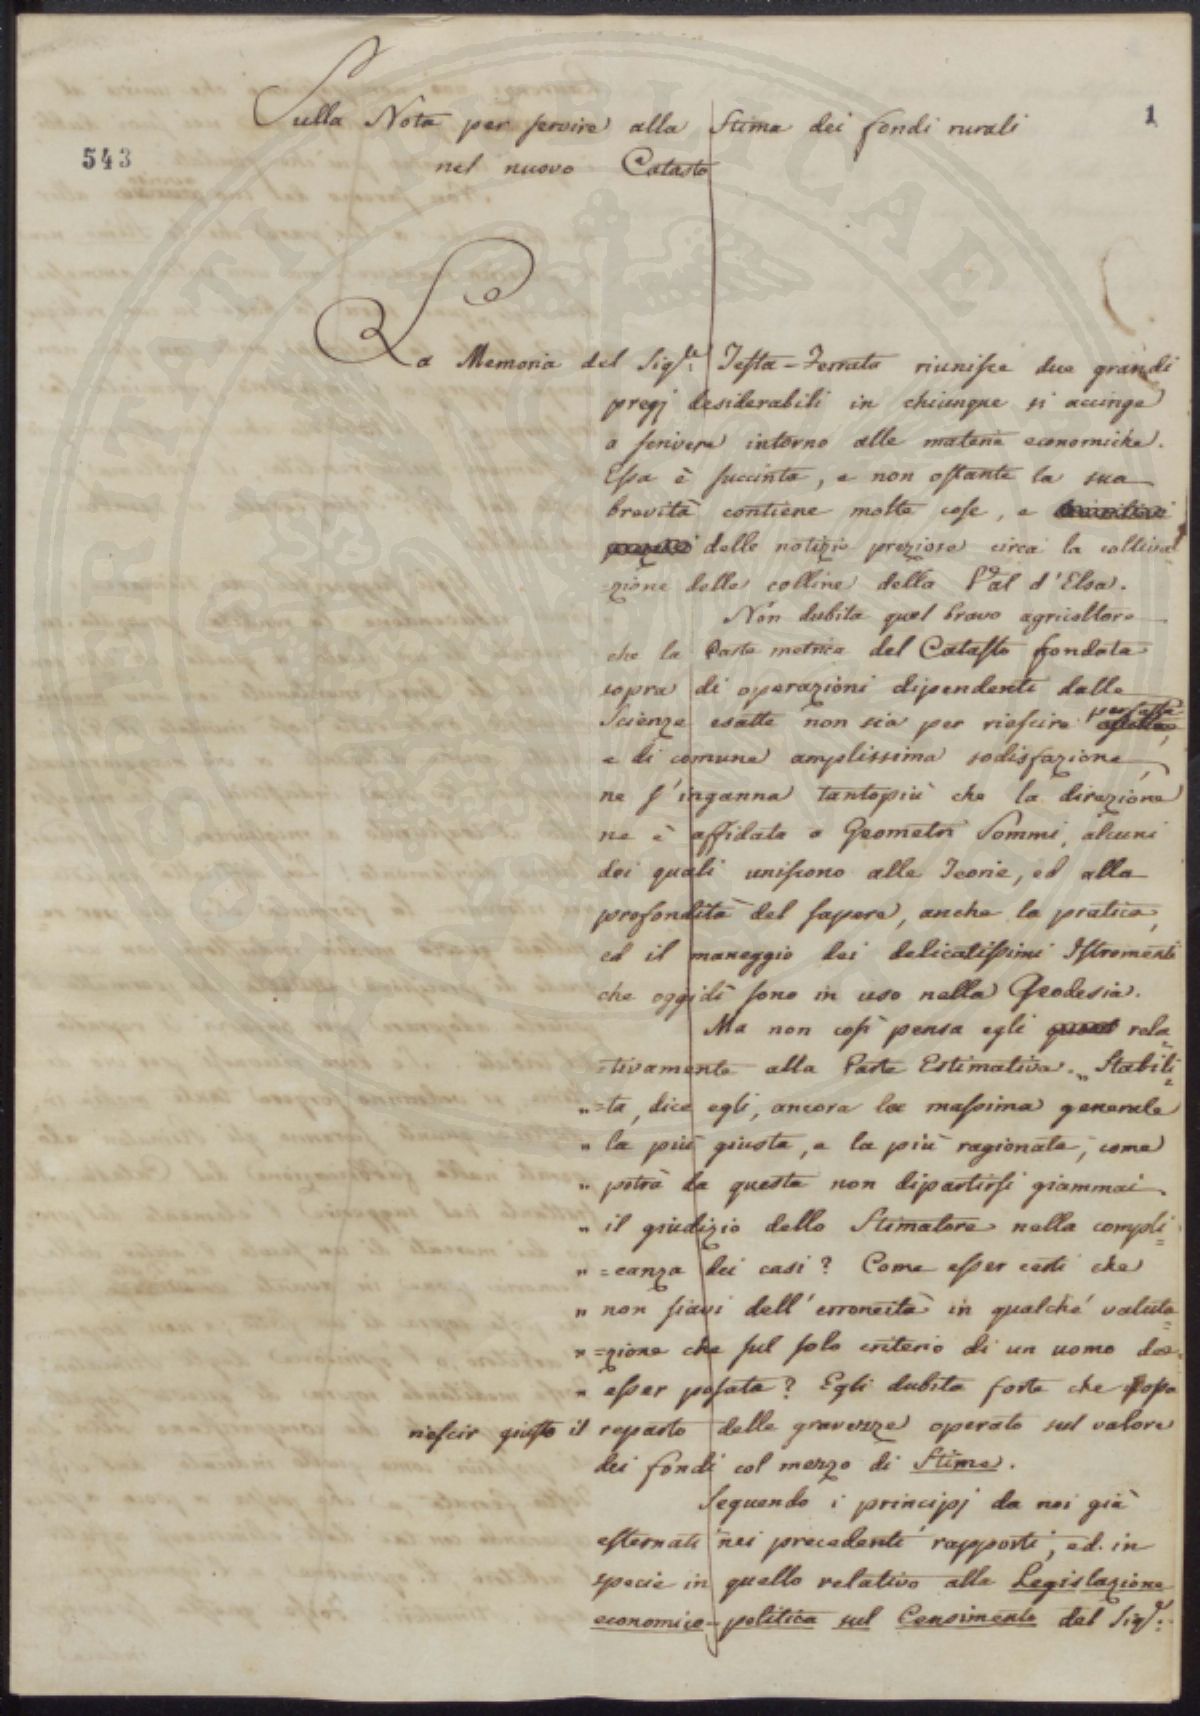 Sulla Nota per servire alla Stima dei fondi rurali
1
543
nel nuovo Catasto
La Memoria del Sig.re Testa-Ferrata riunisce due grandi
pregj desiderabili in chiunque si accinge
a scrivere intorno alle materie economiche.
Essa è succinta, e non ostante la sua
brevità contiene molte cose, e
delle notizie preziose circa la coltiva
=zione delle colline della Val d'Elsa.
Non dubita quel bravo agricoltore
che la Parte metrica del Catasto fondata
sopra di operazioni dipendenti dalle
Scienze esatte non sia per riescire perfetta
e di comune amplissima sodisfazione,
ne s'inganna tantopiù che la direzione
ne è affidata a Geometri Sommi, alcuni
dei quali uniscono alle Teorie, ed alla
profondità del sapere, anche la pratica,
ed il maneggio dei delicatissimi Istromenti
che oggidì sono in uso nella Geodesia.
Ma non così pensa egli rela
=tivamente alla Parte Estimativa. „ Stabili
„ =ta, dice egli, ancora la massima generale
„ la più giusta, e la più ragionata, come
„ potrà da questa non dipartirsi giammai
„ il giudizio dello Stimatore nella compli
„ =canza dei casi? Come esser certi che
„ non siavi dell'erroneità in qualche valuta
„ =zione che sul solo criterio di un uomo dee
„ esser posata? Egli dubita forte che possa
riescir giusto il reparto delle gravezze operato sul valore
dei fondi col mezzo di Stime.
Seguendo i principj da noi già
esternati nei precedenti rapporti, ed in
specie in quello relativo alla Legislazione
economico-politica sul Censimento del Sig.r